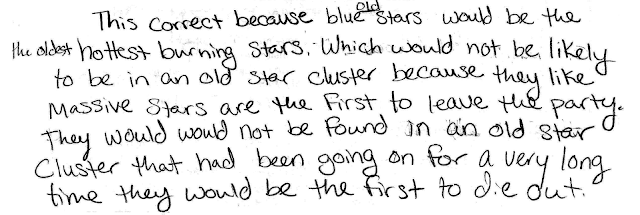 This correct because blue old stars would be the
the oldest hottest burning stars. Which would not be likely
to be in an old star cluster because they like
Massive Stars are the first to leave the party.
They would would not be found in an old star
Cluster that had been going on for a very long
time they would be the first to die out.